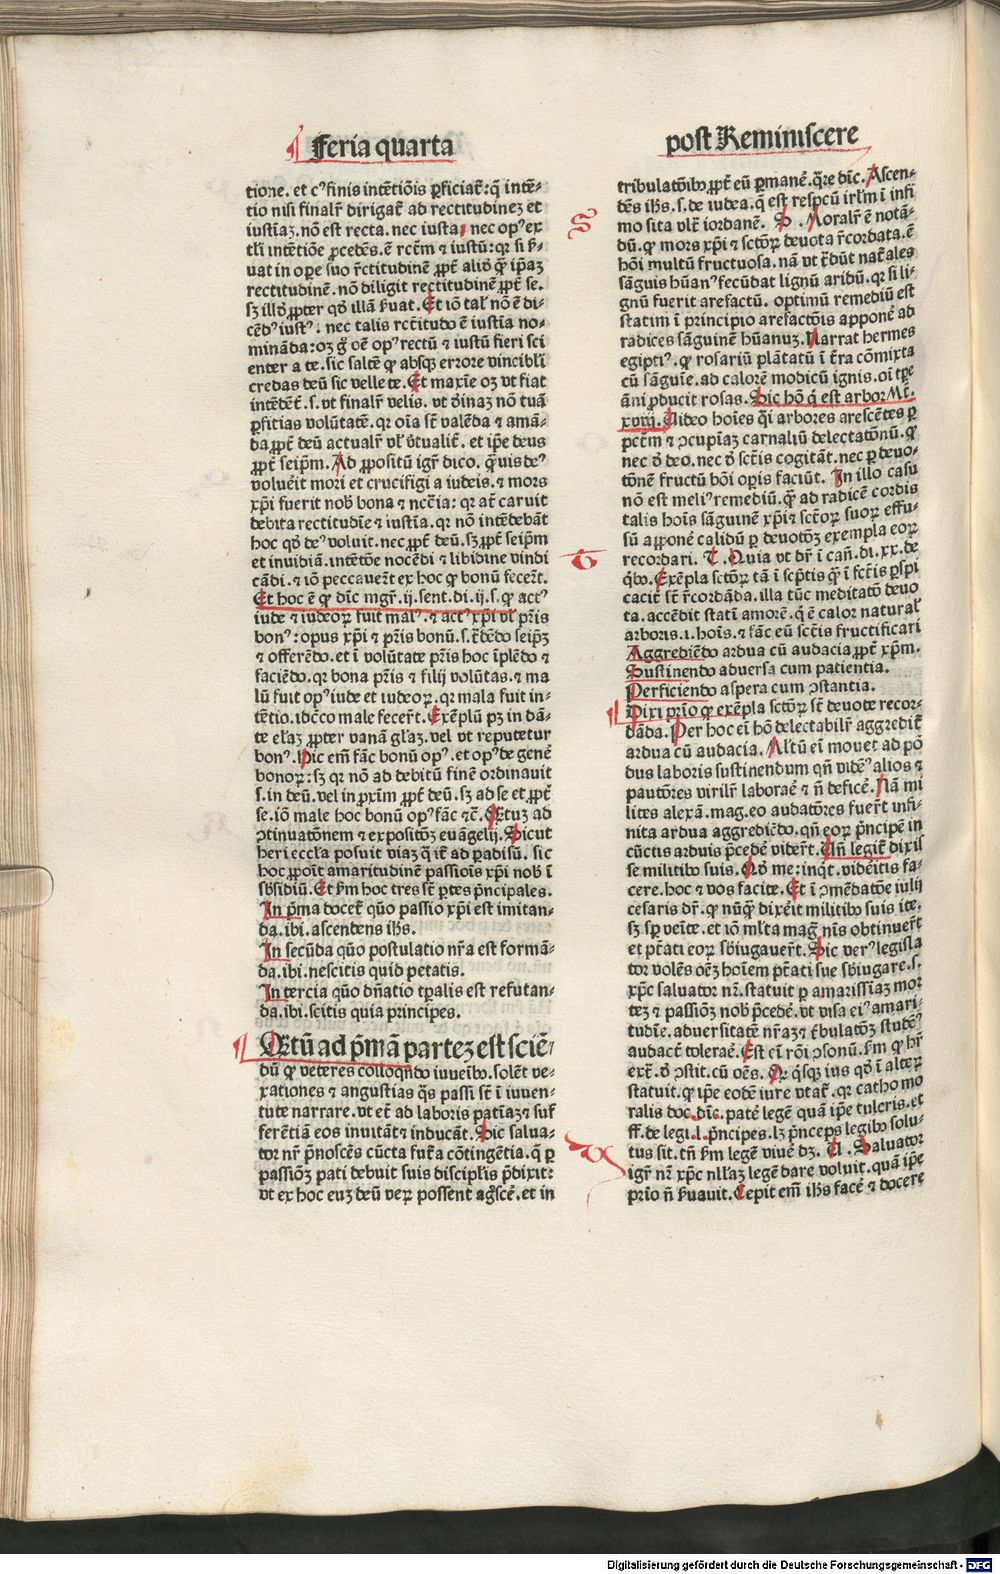 Feria quarta
tione. et cꝰ finis intētiōis ꝑficiat᷑: q̄ intē-
tio nisi finalr̄ dirigat᷑ ad rectitudinez et
iusti̅az. nō est recta. nec iusta, nec opꝰ ex
tli̅ intētiōe ꝓcedēs. ē rctm̄ ⁊ iustū: qr si ẜ-
uat in oꝑe suo rc̄titudinē ꝓpt᷑ aliꝺ̄ q̄ ip̄az
rectitudinē. nō diligit rectitudinē ꝓpt᷑ se.
sꝫ illꝺ̄ ꝓpter qꝺ̄ illā ẜuat. Et iō tal̕ nō ē di-
cēdꝰ iustꝰ. nec talis rctitudo ē iusti̅a no-
mināda: oꝫ gͦ oē opꝰ rectū ⁊ iustū fieri sci
enter a te. sic saltē ꝙ absqꝫ errore vincibli̅
credas deū sic velle te. Et maxi̅e oꝫ vt fiat
intēdēt᷑. s. vt finalr̄ velis. vt ꝺ̄inaꝫ nō tuā
ꝑfitias volūtatē. qr oi̅a sūt valēda ⁊ amā-
da ꝓpt᷑ deū actualr̄ vl̕ v̓tualit᷑. et ip̄e deus
ꝓpt᷑ seip̄m. Ad ꝓpositū igr̄ dico. q̄uis deꝰ
voluēit mori et crucifigi a iudeis. ⁊ mors
xp̄i fuerit nob̄ bona ⁊ nccīa: qr at᷑ caruit
debita rectitudi̅e ⁊ iusti̅a. qr nō intēdebāt
hoc qꝺ̄ deꝰ voluit. nec ꝓpt᷑ deū. sꝫ ꝓpt᷑ seip̄m
et inuidiā. intētōe nocēdi ⁊ libidine vindi
cādi. ⁊ iō peccauer̄t ex hoc ꝙ bonū fecer̄t.
Et hoc ē ꝙ dic̄ mgr̄. ij. sent. di. ij. s. ꝙ actꝰ
iude ⁊ iudeoꝝ fuit malꝰ. ⁊ actꝰ xp̄i vl̕ pris
bonꝰ: opus xp̄i ⁊ pr̄is bonū. s. t̄dēdo seip̄ꝫ
⁊ offerēdo. et i̅ volūtate pr̄is hoc i̅plēdo ⁊
faciēdo. qr bona pr̄is ⁊ filij volūtas. ⁊ ma
lū fuit opꝰ iude et iudeoꝝ. qr mala fuit in-
tētio. idc̄co male fecer̄t. Exēplū pꝫ in dā-
te el̕aꝫ ꝓpter vanā gl̕aꝫ. vel vt reputetur
bonꝰ. Hic em̄ fac̄ bonū opꝰ. et opꝰ de genē
bonoꝝ: sꝫ qr nō ad debitū finē ordinauit
s. in deū. vel in ꝓxi̅m ꝓpt᷑ deū. sꝫ ad se et ꝓpt᷑
se. iō male hoc bonū opꝰ fac̄ ⁊c̄. Qꝫtuꝫ ad
ꝯtinuatōnem ⁊ expositōꝫ euāgelij. Sicut
heri eccl̕a posuit viaꝫ q̄ it᷑ ad ꝑadisū. sic
hoc ꝓpoi̅t amaritudinē passiois xp̄i nob̄ i̅
sb̄sidiū. Et ẜm hoc tres sūt ꝑtes p̄ncipales.
In p̄ma docet᷑ quō passio xp̄i est imitan-
da. ibi. ascendens ihs̄.
In secūda quō postulatio nr̄a est formā-
da. ibi. nescitis quid petatis.
In tercia quō dn̄atio tꝑalis est refutan-
da. ibi. scitis quia principes.
Qꝫtū ad p̄mā partez est sciē-
dū ꝙ veteres colloqn̄do iuueib̄o. solēt ve-
xationes ⁊ angustias q̄s passi sūt i̅ iuuen-
tute narrare. vt et᷑ ad laboris pati̅aꝫ ⁊ suf
ferētiā eos inuitāt ⁊ inducāt. Sic salua-
tor nr̄ p̄noscēs cūcta fut᷑a cōtingētia. q̄ ꝑ
passiōꝫ pati debuit suis discipl̕is p̄dixit:
vt ex hoc euꝫ deū veꝝ possent ag̓scē. et in
post Reminiscere
tribulatōib̄o ꝓpt᷑ eū ꝑmanē. q̄re dic̄. Ascen-
dēs ihs̄. s. de iudea. q̄ est respcū irl̕m i̅ infi
mo sita vlt᷑ iordanē. S. Moralr̄ ē notā-
dū. ꝙ mors xp̄i ⁊ sctōꝝ deuota rc̄ordata. ē
hoi̅ multū fructuosa. nā vt tꝺ̄ūt nat᷑ales
sāguis hūanꝰ fecūdat lignū aridū. qr si li-
gnū fuerit arefactū. optimū remediū est
statim i̅ principio arefactōis apponē ad
radices sāguinē hūanuꝫ. Narrat hermes
egiptiꝰ. ꝙ rosariū plātatū i̅ t̄ra cōmixta
cū sāgui̅e. ad calorē modicū ignis. oi̅ tꝑe
āni ꝓducit rosas. Sic hō q̄ est arbor Mt.
xviij. Uideo hoi̅es q̄i arbores arescētes ꝑ
pctm̄ ⁊ ꝯcupi̅aꝫ carnaliū delectatōnū. ꝙ
nec ꝺ̄ deo. nec ꝺ̄ sctīs cogitāt. nec ꝑ deuo-
tōnē fructū hōi oꝑis faciūt. In illo casu
nō est meliꝰ remediū. q̄ ad radicē cordis
talis hoi̅s sāguinē xp̄i ⁊ sctōꝝ suoꝝ effu-
sū apponē calidū ꝑ deuotōꝫ exempla eoꝝ
recordari. T. Quia vt dr̄ i̅ can̄. di. xx. de
qb̄o. Exēpla sctōꝝ tā i̅ scp̄tis q̄ i̅ fctīs ꝑspi
cacit᷑ sūt rc̄ordāda. illa tūc meditatō deuo
ta. accēdit stati̅ amorē. q̄ ē calor natural̕
arboris. i. hoi̅s. ⁊ fāc eū sctīs fructificari
Aggrediēdo ardua cū audacia ꝓpt᷑ xp̄m.
Sustinendo aduersa cum patientia.
Perficiendo aspera cum ꝯstantia.
Dixi prio ꝙ exēpla sctōꝝ sūt deuote recor-
dāda. Per hoc ei̅ hō delectabilr̄ aggredit᷑
ardua cū audacia. Altū ei̅ mouet ad pō
dus laboris sustinendum qn̄ vidēꝰ alios ⁊
pautōres virilr̄ laborāe ⁊ n̄ deficē. Nā mi
lites alexā. mag. eo audatōres fuer̄t infi-
nita ardua aggrediēdo. qn̄ eoꝝ p̄ncipē in
cūctis arduis p̄cedē vider̄t. Un̄ legit᷑ dixis
se militib̄o suis. Qꝺ̄ me: inq̄t. videritis fa-
cere. hoc ⁊ vos facite. Et i̅ ꝯmēdatōe iulij
cesaris dr̄. ꝙ nūq̄ dixēit militib̄o suis ite.
sꝫ sꝑ vei̅te. et iō ml̕ta mag̅ nis obtinuer̄t
et ptāti eoꝝ sb̄iugauer̄t. Sic verꝰ legisla
tor volēs oēꝫ hoi̅em ptāti sue sb̄iugare. s.
xp̄c saluator nr̄. statuit ꝑ amarissi̅aꝫ mor
teꝫ ⁊ passiōꝫ nob̄ p̄cedē. vt visa eiꝰ amari-
tudi̅e. aduersitatē nr̄aꝫ ⁊ t̄bulatōꝫ studēꝰ
audact᷑ tolerāe. Est ei̅ rōi ꝯsonū. ẜm ꝙ hr̄
ext᷑. ꝺ̄ ꝯstit. cū oēs. Qr q̄sqꝫ ius qꝺ̄ i̅ alteꝝ
statuit. ꝙ ip̄e eodē iure vtat᷑. qr catho mo
ralis doc. dic̄. patē legē quā ip̄e tuleris. et
ff. de legi. l. p̄ncipes. lꝫ p̄nceps legib̄o solu-
tus sit. tn̄ ẜm legē viuē dꝫ. U. Saluator
igr̄ nr̄ xp̄c nll̕aꝫ legē dare voluit. quā ip̄e
prio n̄ ẜuauit. Cepit em̄ ihs̄ facē ⁊ docere
S
T
V
Digitalisierung gefördert durch die Deutsche Forschungsgemeinschaft - DFG